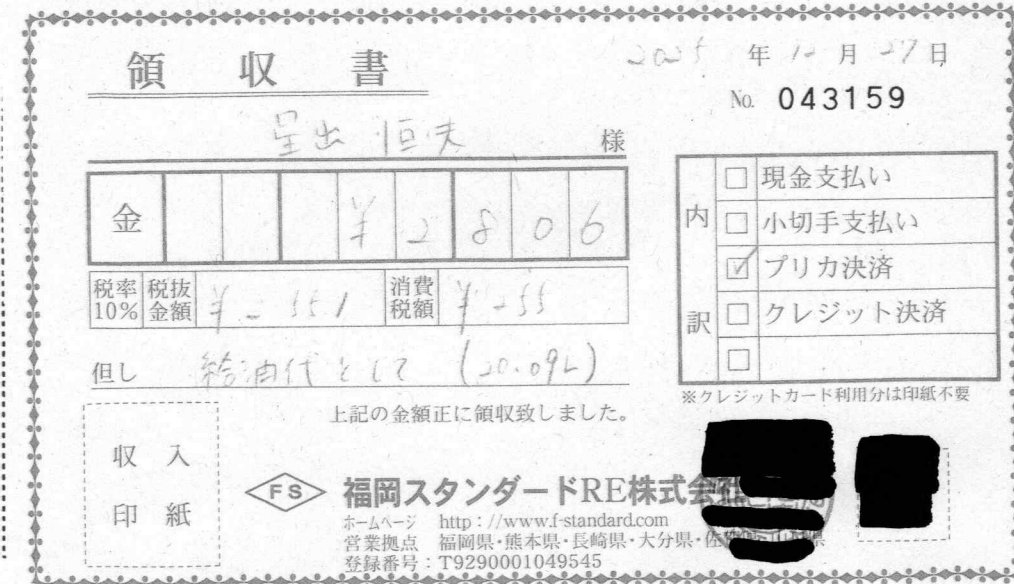 領収書
2025年12月27日
No. 043159
恒夫 様
金 ¥2806
税率10% 税抜金額 ¥2551 消費税額 ¥255
但し 給油代として (20.09L)
上記の金額正に領収致しました。
内訳
現金支払い
小切手支払い
プリカ決済
クレジット決済
※クレジットカード利用分は印紙不要
収入
印紙
FS 福岡スタンダードRE株式会社
ホームページ http://www.f-standard.com
営業拠点 福岡県・熊本県・長崎県・大分県・佐
登録番号:T9290001049545